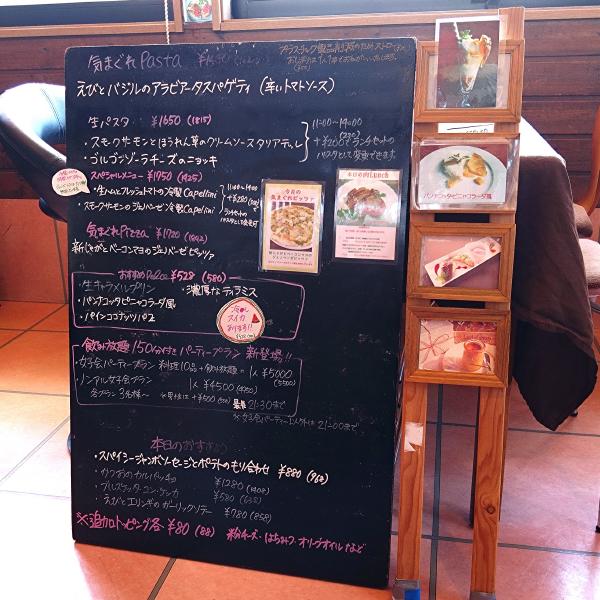 気まぐれ Pasta
えびとバジルのアラビアータスパゲティ (辛いトマトソース)
生パスタ ¥1650 (1815)
・スモークサーモンとほうれん草のクリームソースタリアテッレ
・ゴルゴンゾーラチーズのニョッキ
11:00〜14:00
+¥200でランチセットの
パスタとして変更できます。
スペシャルメニュー ¥1750 (1925)
・生ハムとフレッシュトマトの冷製 Capellini
・スモークサーモンのジェノベーゼ冷製 Capellini
11:00〜14:00
気まぐれ Pizza ¥1720 (1892)
新じゃがとベーコンマヨのジェノベーゼピッツァ
おすすめ Dolce ¥528 (580)
・生キャラメルプリン ・濃厚なティラミス
・パンナコッタピニャコラーダ風
・パインココナッツパフェ
冷たい
スイカ
あります!!
飲み放題150分付きパーティープラン 新登場!!
・女子会パーティープラン 料理10品+飲み放題=1人 ¥5000
(5500)
・ノンアル女子会プラン 1人 ¥4500 (4950)
各プラン 3名様〜
21:30まで
本日のおすすめ
・スパイシージャンボソーセージとポテトのもり合わせ ¥880 (968)
・かつおのカルパッチョ ¥1280 (1408)
・ブルスケッタ・コン・ケッカ ¥580 (638)
・えびとエリンギのガーリックソテー ¥780 (858)
※追加トッピング各 ¥80 (88) 粉チーズ・はちみつ・オリーブオイルなど
今月の
気まぐれピッツァ
本日の肉Lunch
パンナコッタピニャコラーダ風